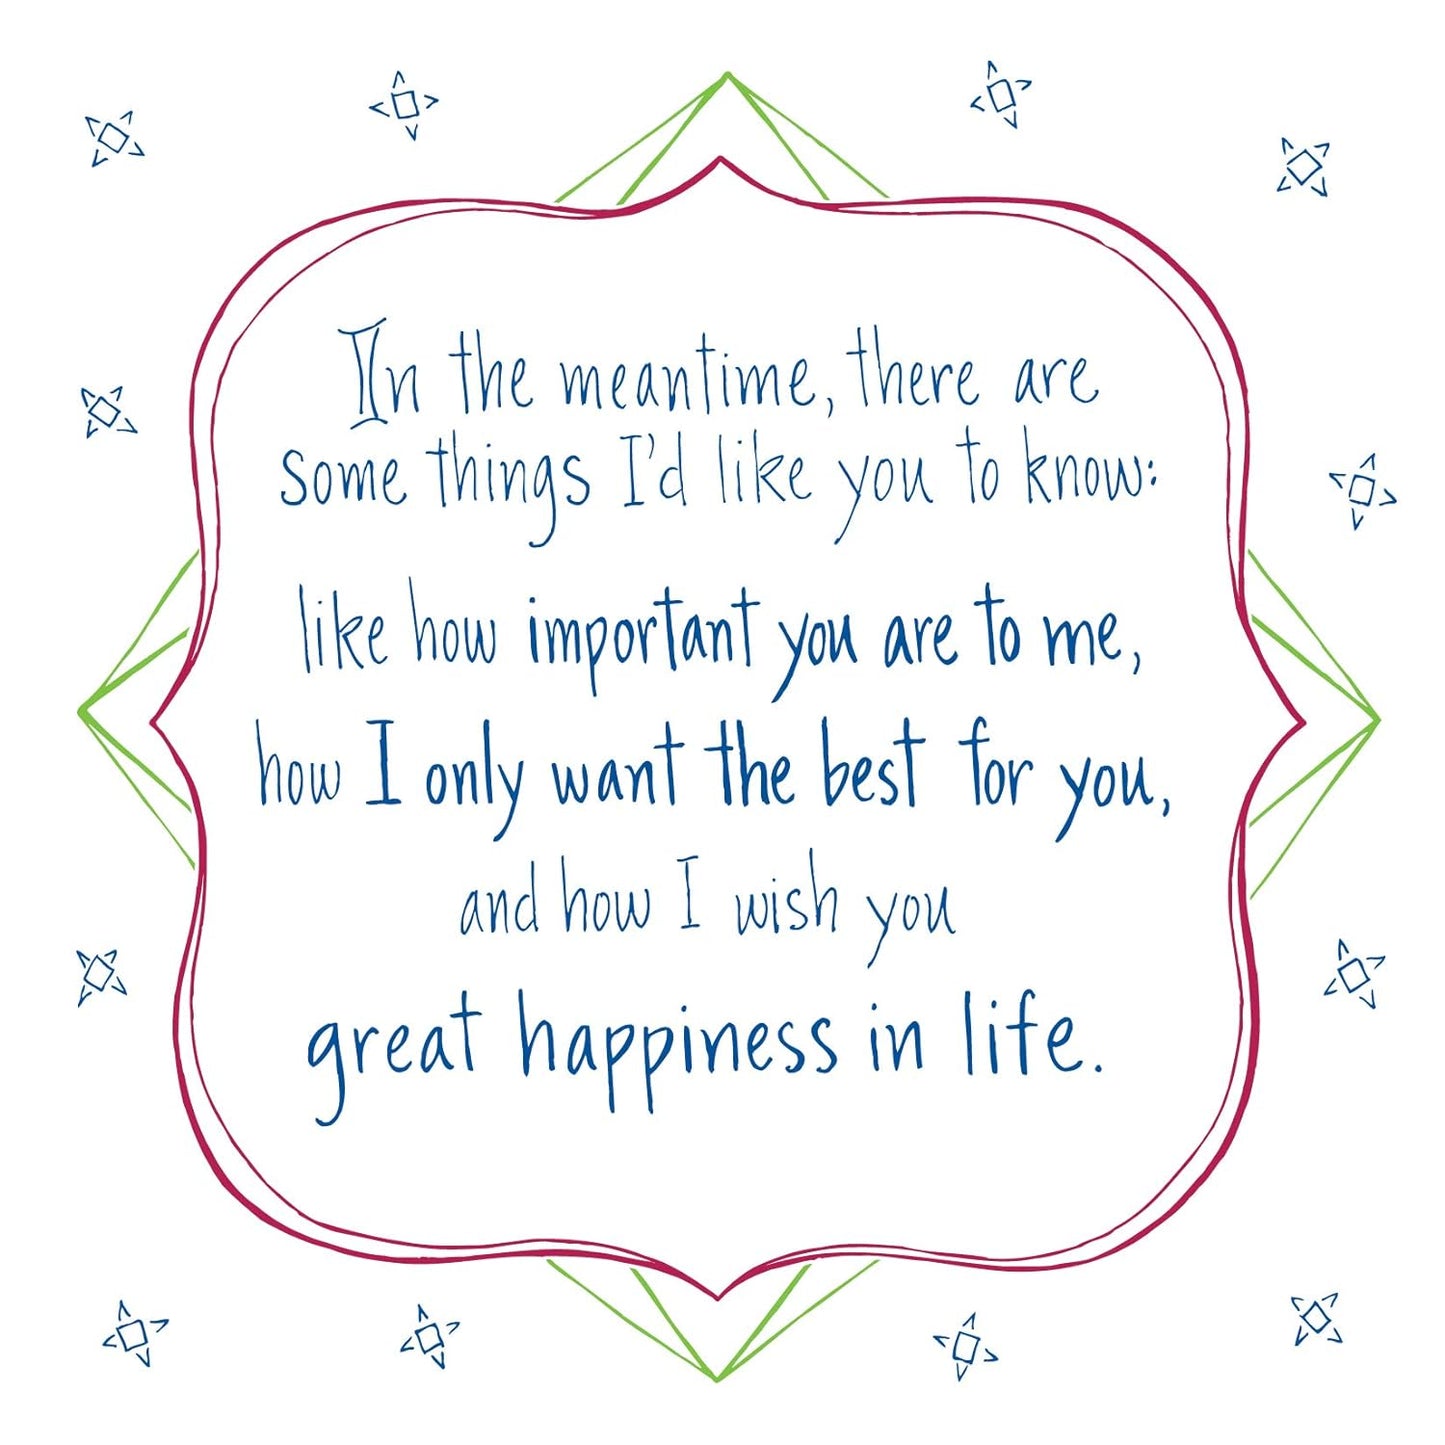 In the meantime, there are
some things I'd like you to know:
like how important you are to me,
how I only want the best for you,
and how I wish you
great happiness in life.